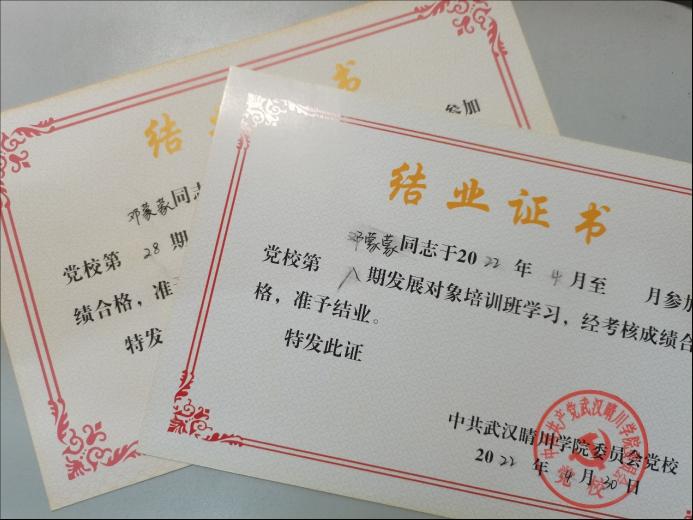 结
书
参加
邓蒙蒙同志
党校第 28 期
绩合格，准予
特发
结业证书
邓蒙蒙同志于2022年4月至 月参加
党校第 八 期发展对象培训班学习，经考核成绩合
格，准予结业。
特发此证
中共武汉晴川学院委员会党校
2022年4月30日
中共武汉晴川学院委员会
党校